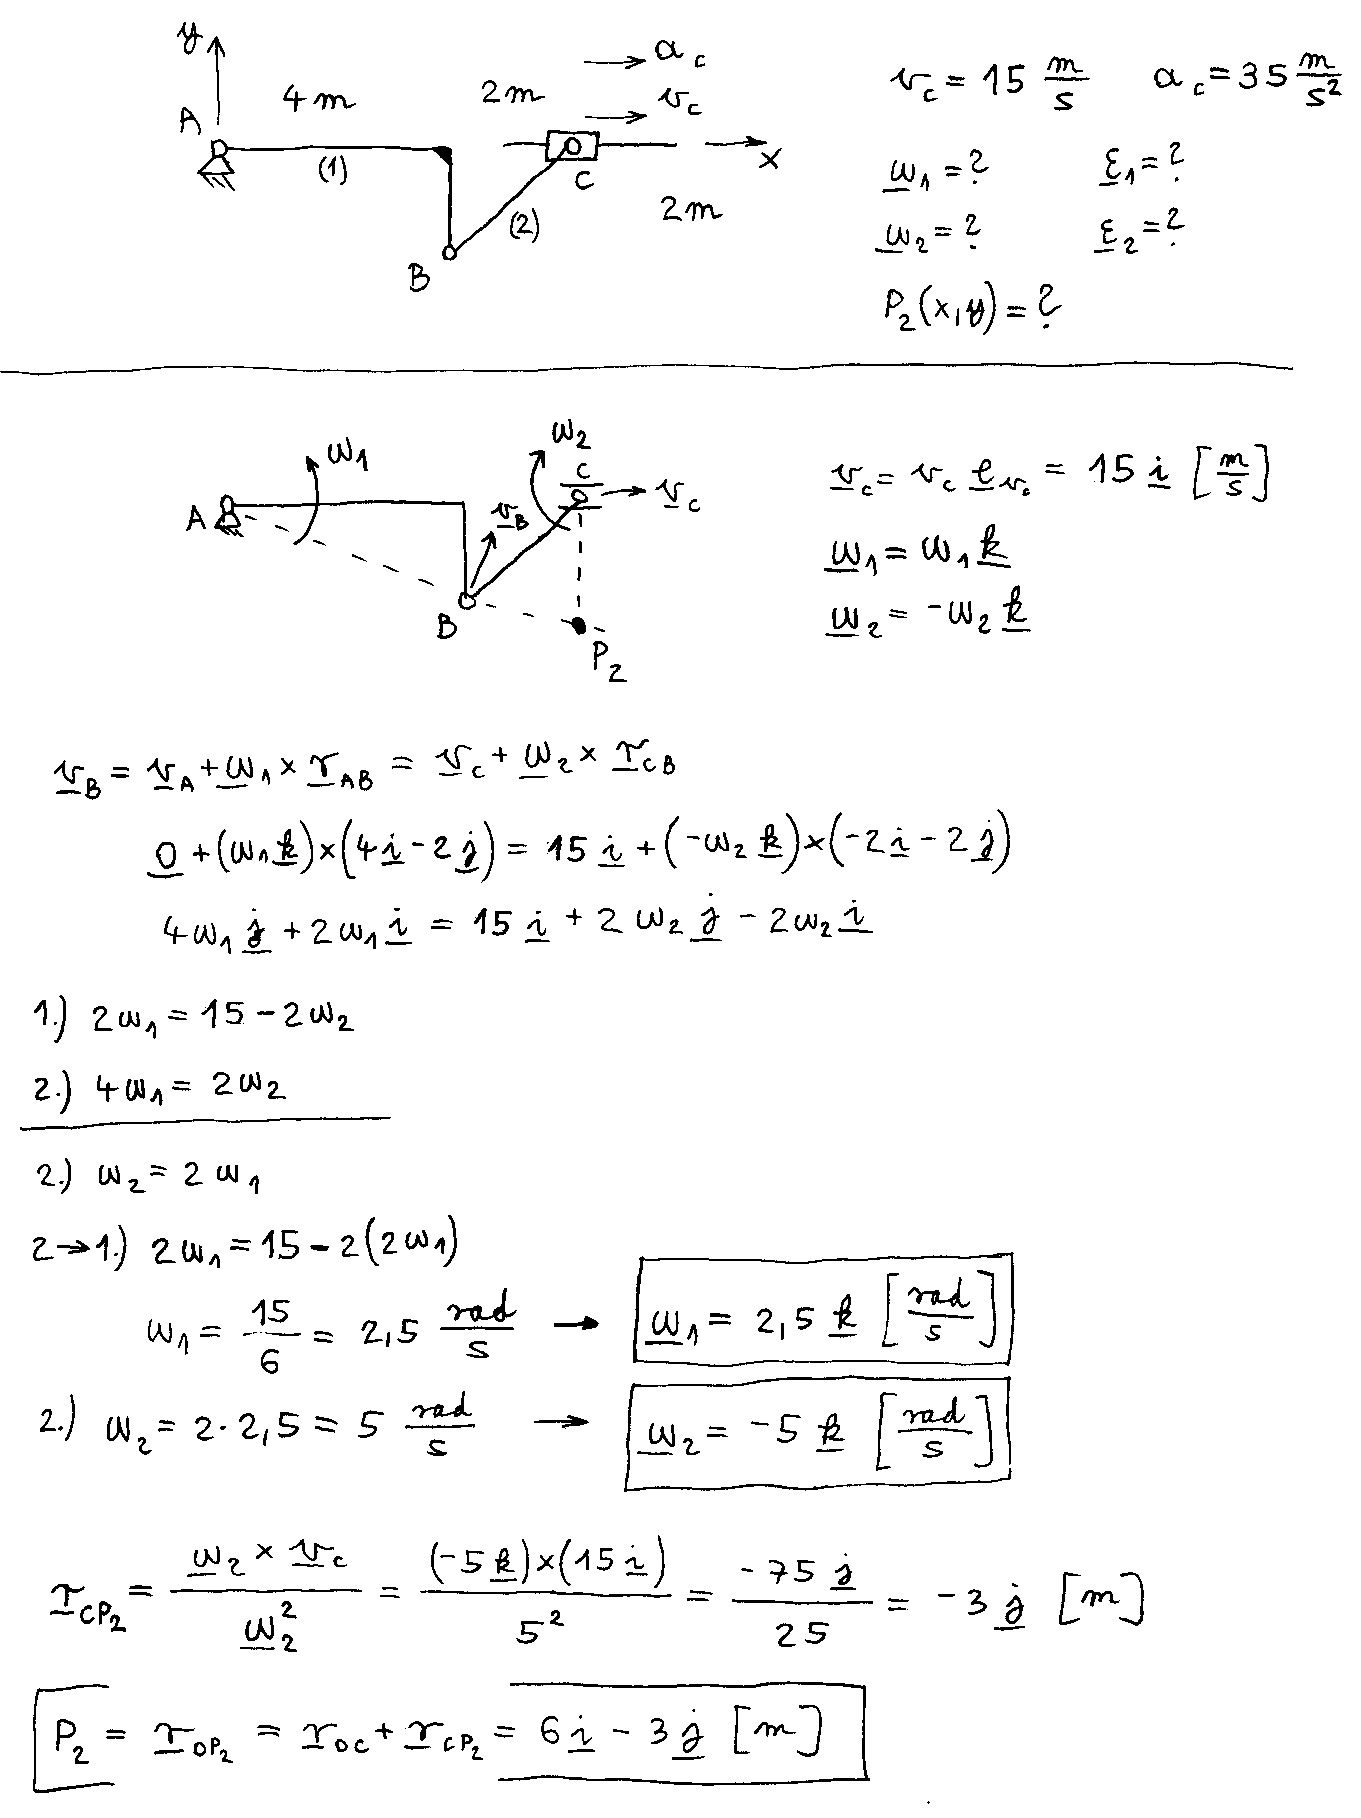 y
a_c
4 m
2 m
v_c
A
(1)
C
x
(2)
2 m
B
v_c = 15 m/s   a_c = 35 m/s²
ω̲₁ = ?   ε̲₁ = ?
ω̲₂ = ?   ε̲₂ = ?
P₂(x,y) = ?
ω₁
ω₂
C
v̲_B
v̲_c
A
B
P₂
v̲_c = v_c e̲_vc = 15 i̲ [m/s]
ω̲₁ = ω₁ k̲
ω̲₂ = -ω₂ k̲
v̲_B = v̲_A + ω̲₁ × r̲_AB = v̲_c + ω̲₂ × r̲_CB
0̲ + (ω₁ k̲) × (4 i̲ - 2 j̲) = 15 i̲ + (-ω₂ k̲) × (-2 i̲ - 2 j̲)
4ω₁ j̲ + 2ω₁ i̲ = 15 i̲ + 2 ω₂ j̲ - 2ω₂ i̲
1.) 2ω₁ = 15 - 2ω₂
2.) 4ω₁ = 2ω₂
2.) ω₂ = 2 ω₁
2→1.) 2ω₁ = 15 - 2(2ω₁)
ω₁ = 15/6 = 2,5 rad/s → ω̲₁ = 2,5 k̲ [rad/s]
2.) ω₂ = 2·2,5 = 5 rad/s → ω̲₂ = -5 k̲ [rad/s]
r̲_CP₂ = (ω̲₂ × v̲_c)/ω̲₂² = ((-5 k̲)×(15 i̲))/5² = (-75 j̲)/25 = -3 j̲ [m]
P₂ = r̲_OP₂ = r̲_OC + r̲_CP₂ = 6 i̲ - 3 j̲ [m]